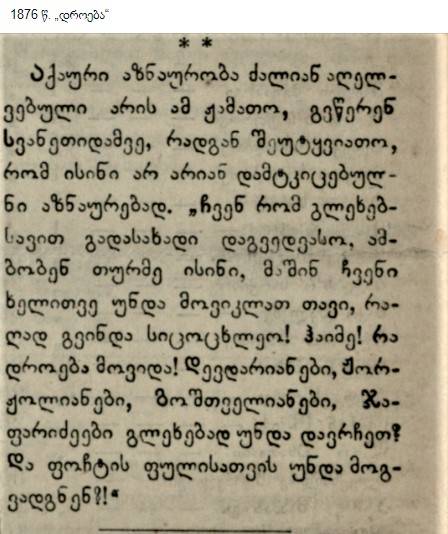 1876 წ. „დროება“
* *
აქაური აზნაურობა ძალიან აღელ-
ვებული არის ამ ჟამათო, გვწერენ
სვანეთიდამვე, რადგან შეუტყვიათო,
რომ ისინი არ არიან დამტკიცებულ-
ნი აზნაურებად. „ჩვენ რომ გლეხებ-
სავით გადასახადი დაგვედვასო, ამ-
ბობენ თურმე ისინი, მაშინ ჩვენი
ხელითვე უნდა მოვიკლათ თავი, რა-
ღად გვინდა სიცოცხლეო! ჰაიმე! რა
დროება მოვიდა! დევდარიანები, ჟორ-
ჟოლიანები, გოშთველიანები, ჯა-
ფარიძეები გლეხებად უნდა დავრჩეთ?
და ფოჩტის ფულისათვის უნდა მოგ-
ვადგნენ?!“